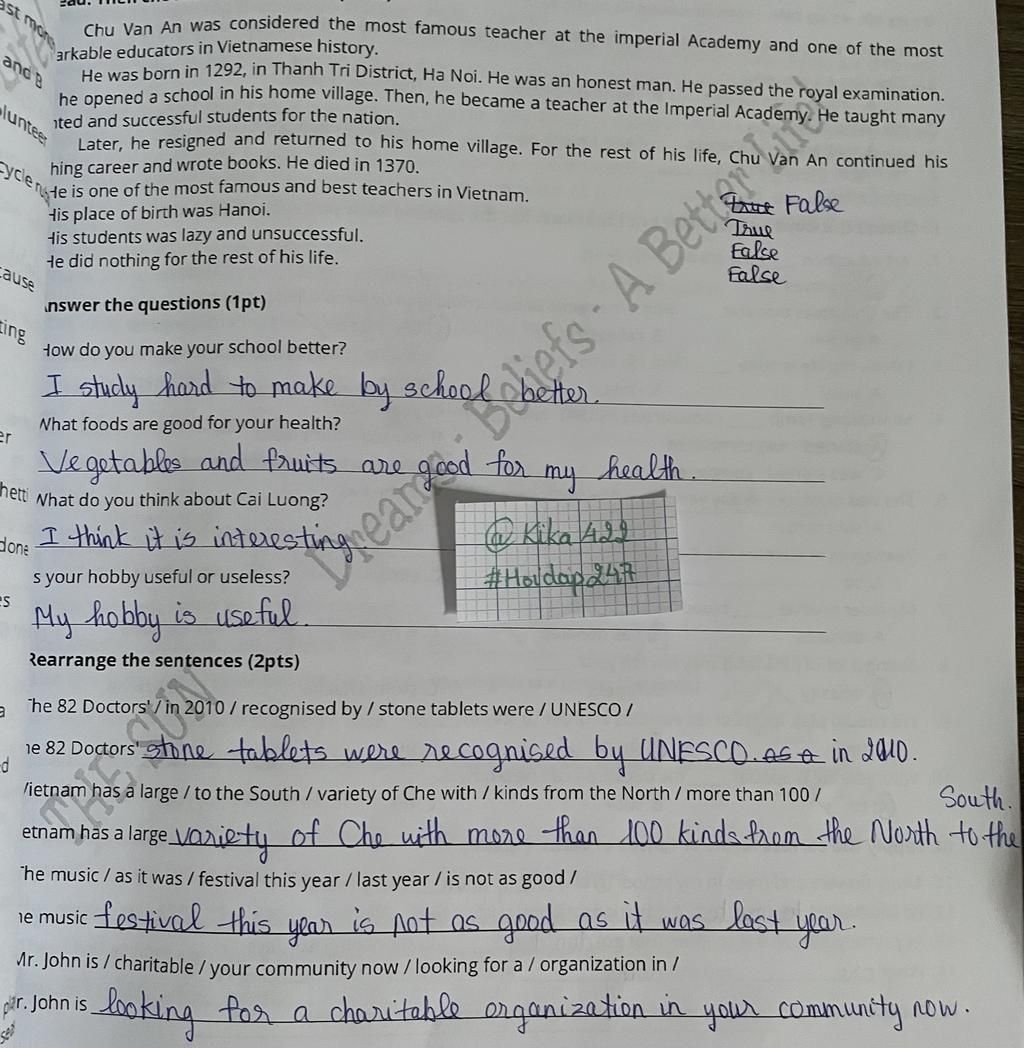 Chu Van An was considered the most famous teacher at the imperial Academy and one of the most
arkable educators in Vietnamese history.
He was born in 1292, in Thanh Tri District, Ha Noi. He was an honest man. He passed the royal examination.
he opened a school in his home village. Then, he became a teacher at the Imperial Academy. He taught many
nted and successful students for the nation.
Later, he resigned and returned to his home village. For the rest of his life, Chu Van An continued his
hing career and wrote books. He died in 1370.
He is one of the most famous and best teachers in Vietnam. True False
His place of birth was Hanoi. True
His students was lazy and unsuccessful. False
He did nothing for the rest of his life. False
nswer the questions (1pt)
How do you make your school better?
I study hard to make by school better.
What foods are good for your health?
Vegetables and fruits are good for my health.
What do you think about Cai Luong?
I think it is interesting
@Kika422
#Hoidap247
s your hobby useful or useless?
My hobby is useful.
Rearrange the sentences (2pts)
The 82 Doctors' / in 2010 / recognised by / stone tablets were / UNESCO /
he 82 Doctors' stone tablets were recognised by UNESCO. as a in 2010.
Vietnam has a large / to the South / variety of Che with / kinds from the North / more than 100 /
etnam has a large variety of Che with more than 100 kinds from the North to the South.
The music / as it was / festival this year / last year / is not as good /
he music festival this year is not as good as it was last year.
Mr. John is / charitable / your community now / looking for a / organization in /
r. John is looking for a charitable organization in your community now.
THE SUN Dreams · Beliefs · A Better Life!